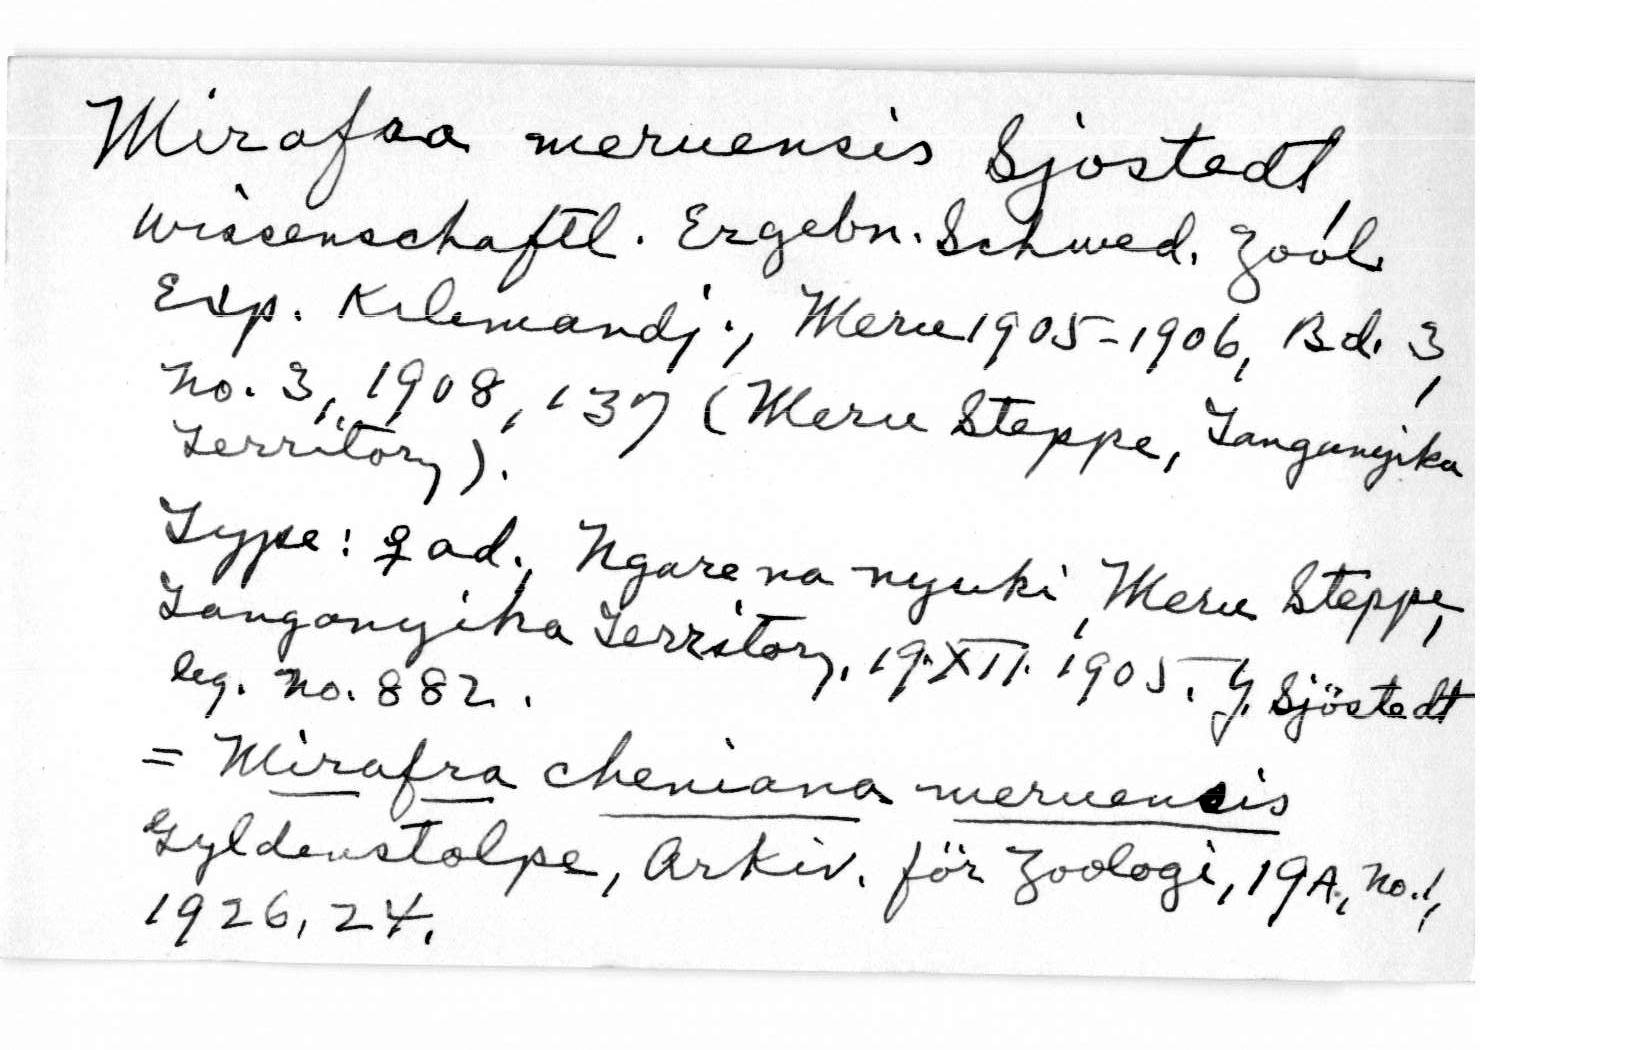 Mirafra meruensis Sjostedt,
Wissenschaftl. Ergebn. Schwed. Zool.
Exp. Kilimandj., Meru 1905-1906, Bd. 3,
No. 3, 1908, 137 (Meru Steppe, Tanganyika
Territory).
Type: ♀ ad., Ngare na nyuki, Meru Steppe,
Tanganyika Territory, 19.XII.1905. Y. Sjöstedt
leg. No. 882.
= Mirafra cheniana meruensis
Gyldenstolpe, Arkiv. för Zoologi, 19A, No. 1,
1926, 24.